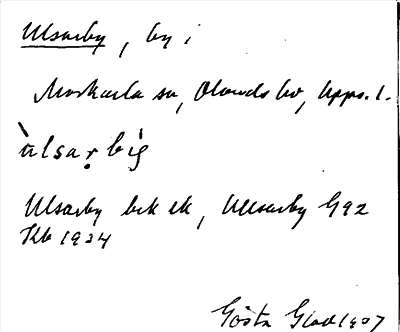 Ulsarby, by i
Morkarla sn, Olands hd, Upps. l.
ùlsarbi̇g
Ulsarby bek ek, Ullsarby G92
Kb 1934
Gösta Glad 1937